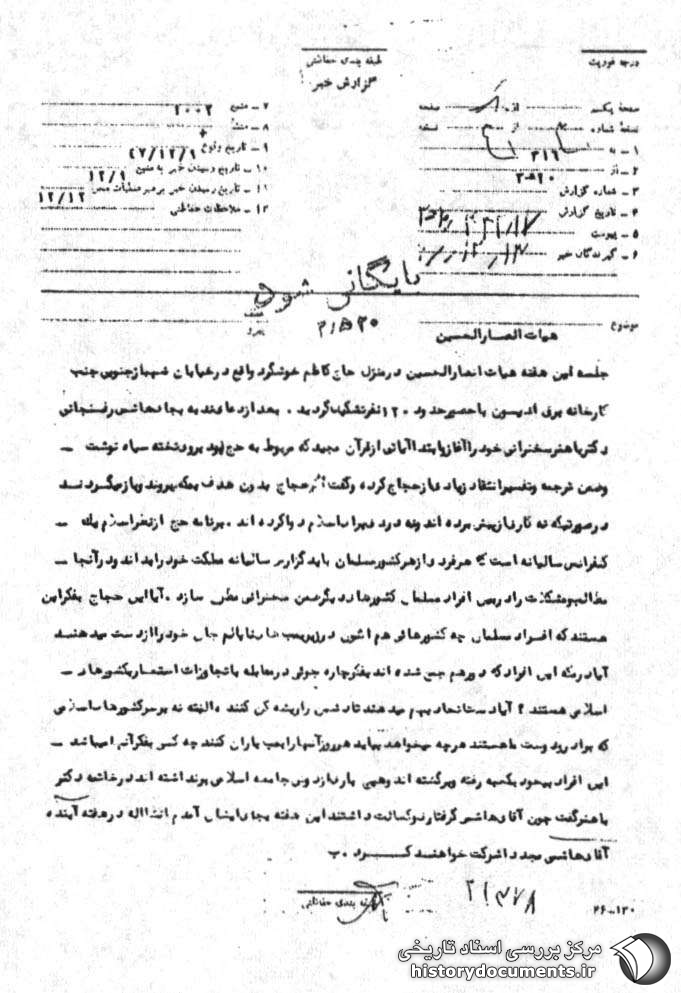 درجه فوریت
طبقه بندی حفاظتی
گزارش خبر
صفحه یکم از صفحه
نسخه شماره از نسخه
۱ ـ به ۳۱۶
۲ ـ از ۲۰ه۲
۳ ـ شماره گزارش
۴ ـ تاریخ گزارش
۵ ـ پیوست
۶ ـ گیرندگان خبر
۷ ـ منبع ۱۰۰۲
۸ ـ منشأ
۹ ـ تاریخ وقوع ۴۷/۱۲/۹
۱۰ ـ تاریخ رسیدن خبر به منبع ۱۲/۹
۱۱ ـ تاریخ رسیدن خبر برهبر عملیات محلی ۱۲/۱۲
۱۲ ـ ملاحظات حفاظتی
بایگانی شود
موضوع
هیات انصارالحسین
جلسه این هفته هیات انصارالحسین در منزل حاج کاظم خوشگرد واقع در خیابان شهباز جنوبی جنب
کارخانه برق ادیسون با حضور حدود ۱۲۰ نفر تشکیل گردید . بعد از دعای ندبه بجای هاشمی رفسنجانی
دکتر باهنر سخنرانی خود را آغاز و ابتدا آیاتی از قرآن مجید که مربوط به حج بود بر روی تخته سیاه نوشت ـ
وضمن ترجمه وتفسیر انتقاد زیادی از حجاج کرده وگفت اکثر حجاج بدون هدف بمکه میروند و باز میگردند
در صورتیکه نه کاری از پیش برده اند ونه درد فقرا اسلام دوا کرده اند . برنامه حج از نظر اسلام یک ـ
کنفرانس سالیانه است که هر فردی از هر کشور مسلمان باید گزارش سالیانه مملکت خود را بداند ودر آنجا ـ
مطالب ومشکلات را در بین افراد مسلمان کشورهای دیگر ضمن سخنرانی مطرح سازد . آیا این حجاج بفکر این
هستند که افراد مسلمان چه کشورهائی هم اکنون در زیر بمب های ناپالم جان خود را از دست میدهند
آیا در مکه این افراد که دورهم جمع شده اند بفکر چاره جوئی در مقابله با تجاوزات استعمار بکشورهای ـ
اسلامی هستند ؟ آیا دست اتحاد بهم میدهند تا دشمن را ریشه کن کنند . والبته نه بر سر کشورهای اسلامی
که برادر و دوست ما هستند هرچه میخواهد بیاید هر روز آنها را بمب باران کنند چه کسی بفکر آنها میباشد ـ
این افراد بیخود بکعبه رفته وبرگشته اند وهیچ باری از دوش جامعه اسلامی برنداشته اند در خاتمه دکتر
باهنر گفت چون آقای هاشمی گرفتاری وکسالت داشتند این هفته بجای ایشان آمدم انشااله در هفته آینده
آقای هاشمی مجددا شرکت خواهند کرد . ب
طبقه بندی حفاظتی
۲۱۳۷۸
۲۶ ـ ۱۳۰
مرکز بررسی اسناد تاریخی
historydocuments.ir